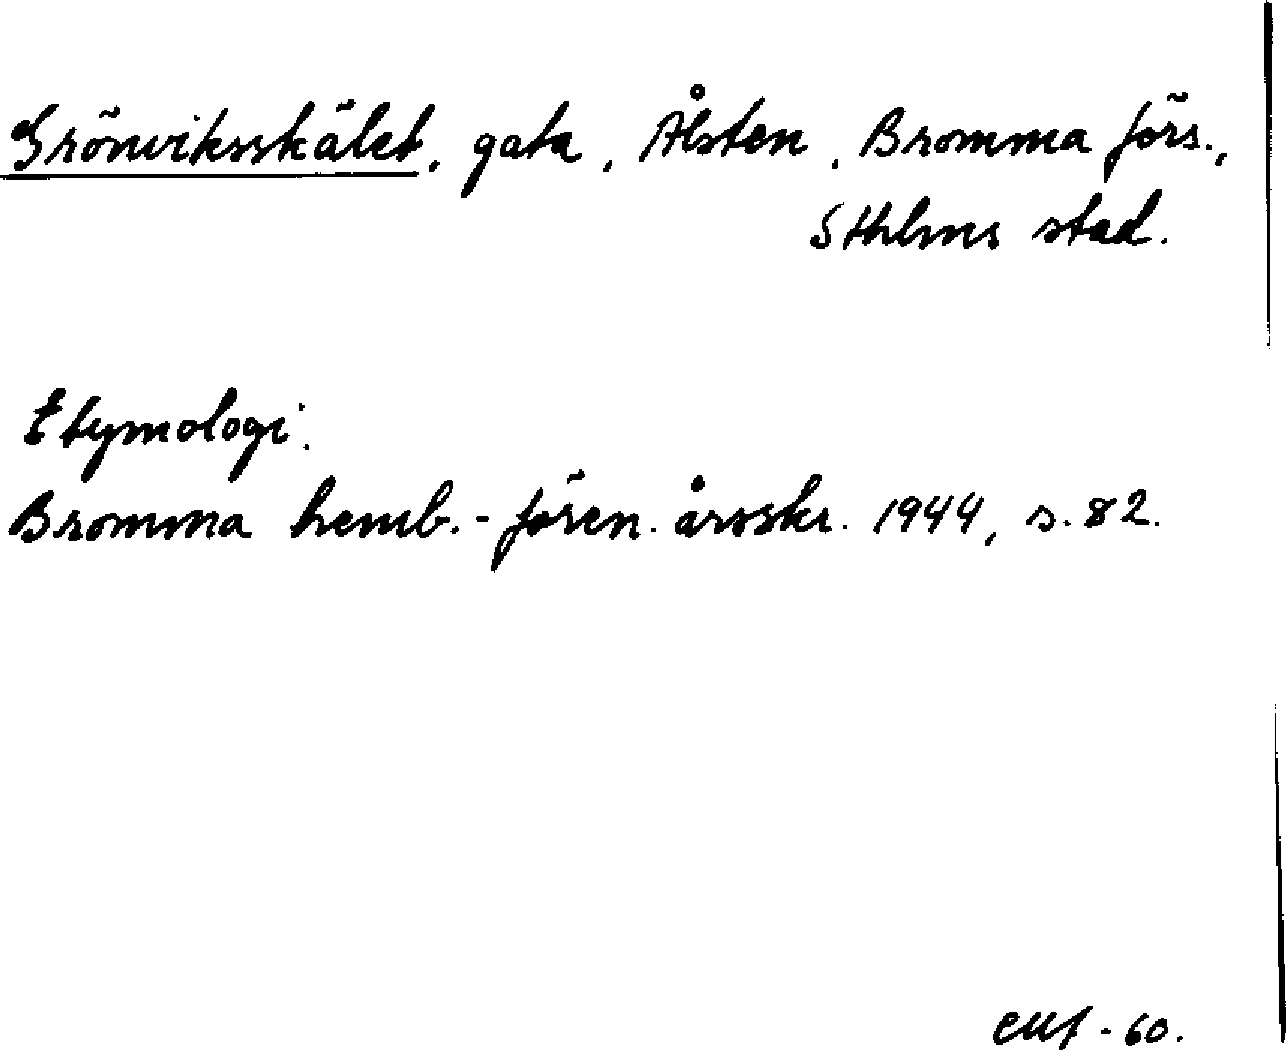 Grönviksskälet, gata, Ålsten, Bromma förs.,
Sthlms stad.
Etymologi:
Bromma hemb.-fören. årsskr. 1944, s. 82.
-60.